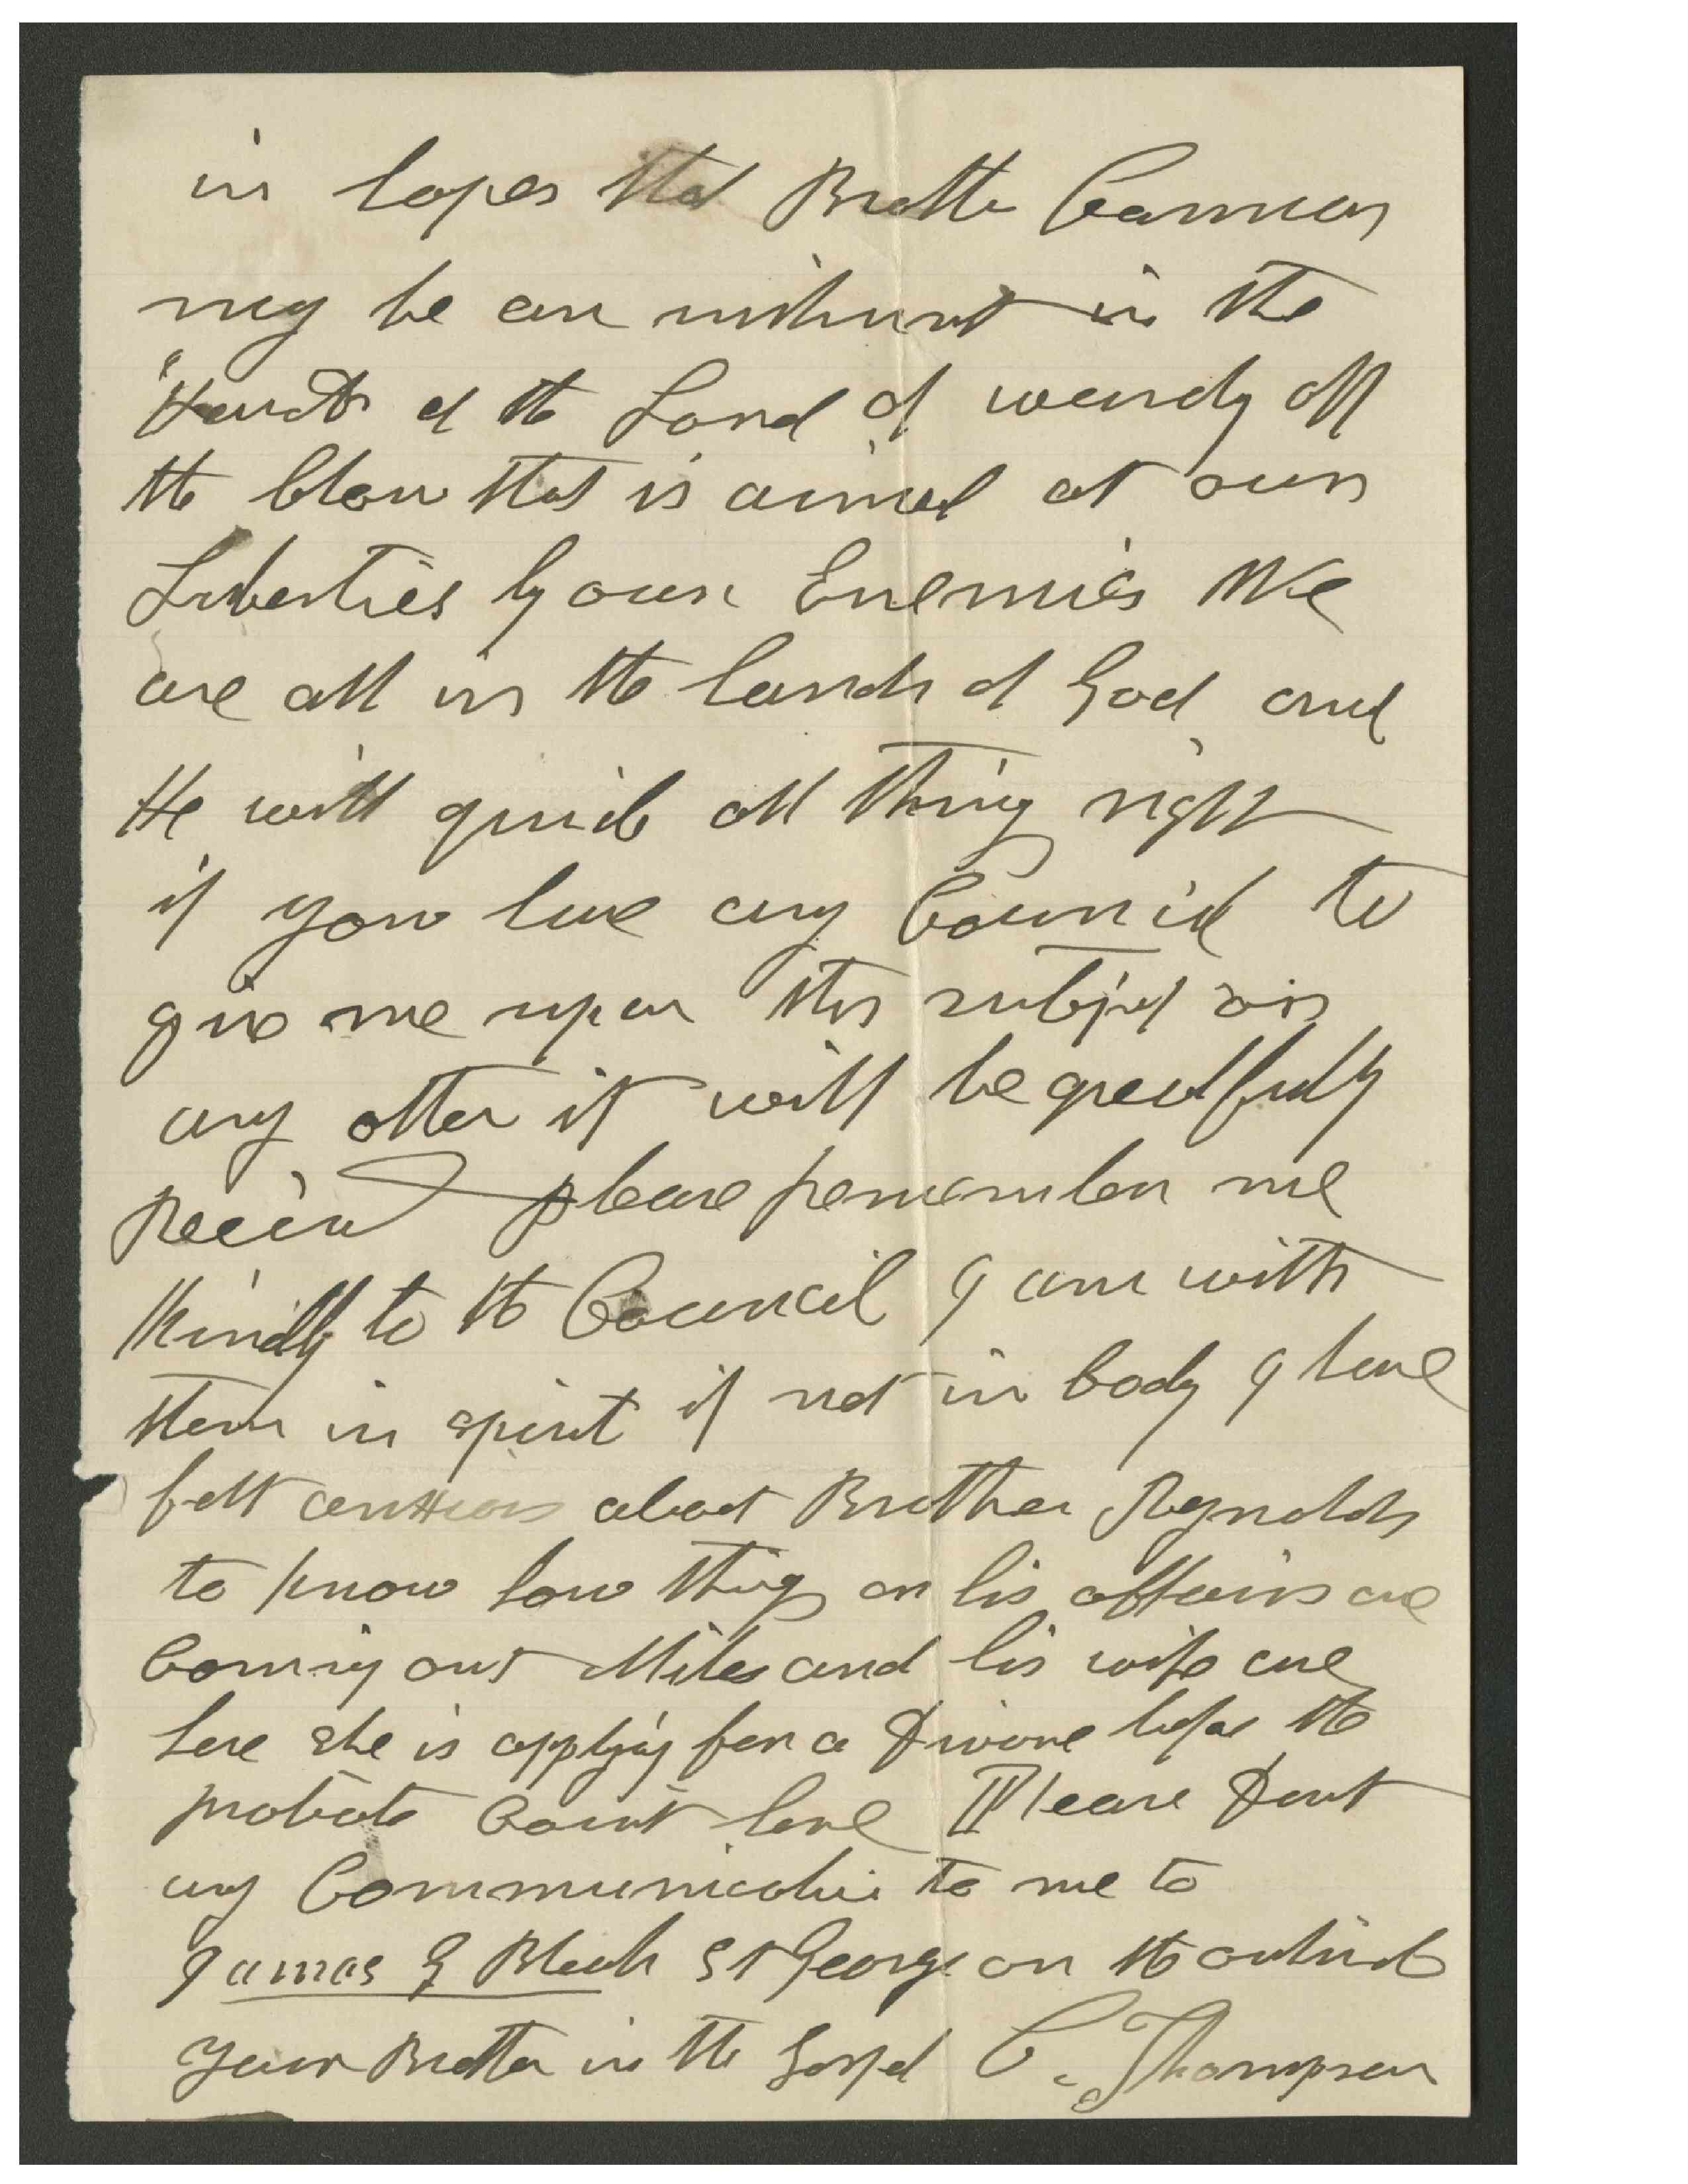 in hopes that Brother Cannon
may be an instrument in the
Hands of the Lord of wardg off
the blow that is aimed at our
Liberties by our Enemies We
are all in the hands of God and
He will guide all thing right
if you have any Council to
give me upon this subject or
any other it will be greatfully
Recived please remember me
Kindly to the Council I am with
them in spirit if not in body I have
felt anxious about Brother Reynolds
to know how things on his affairs are
Coming out Miles and his wife are
here she is applyig for a Divorce before the
probate Court here Please Dirct
any Communication to me to
James G Bleak St George on the outside
Your Brother in the Gospel C. Thompson